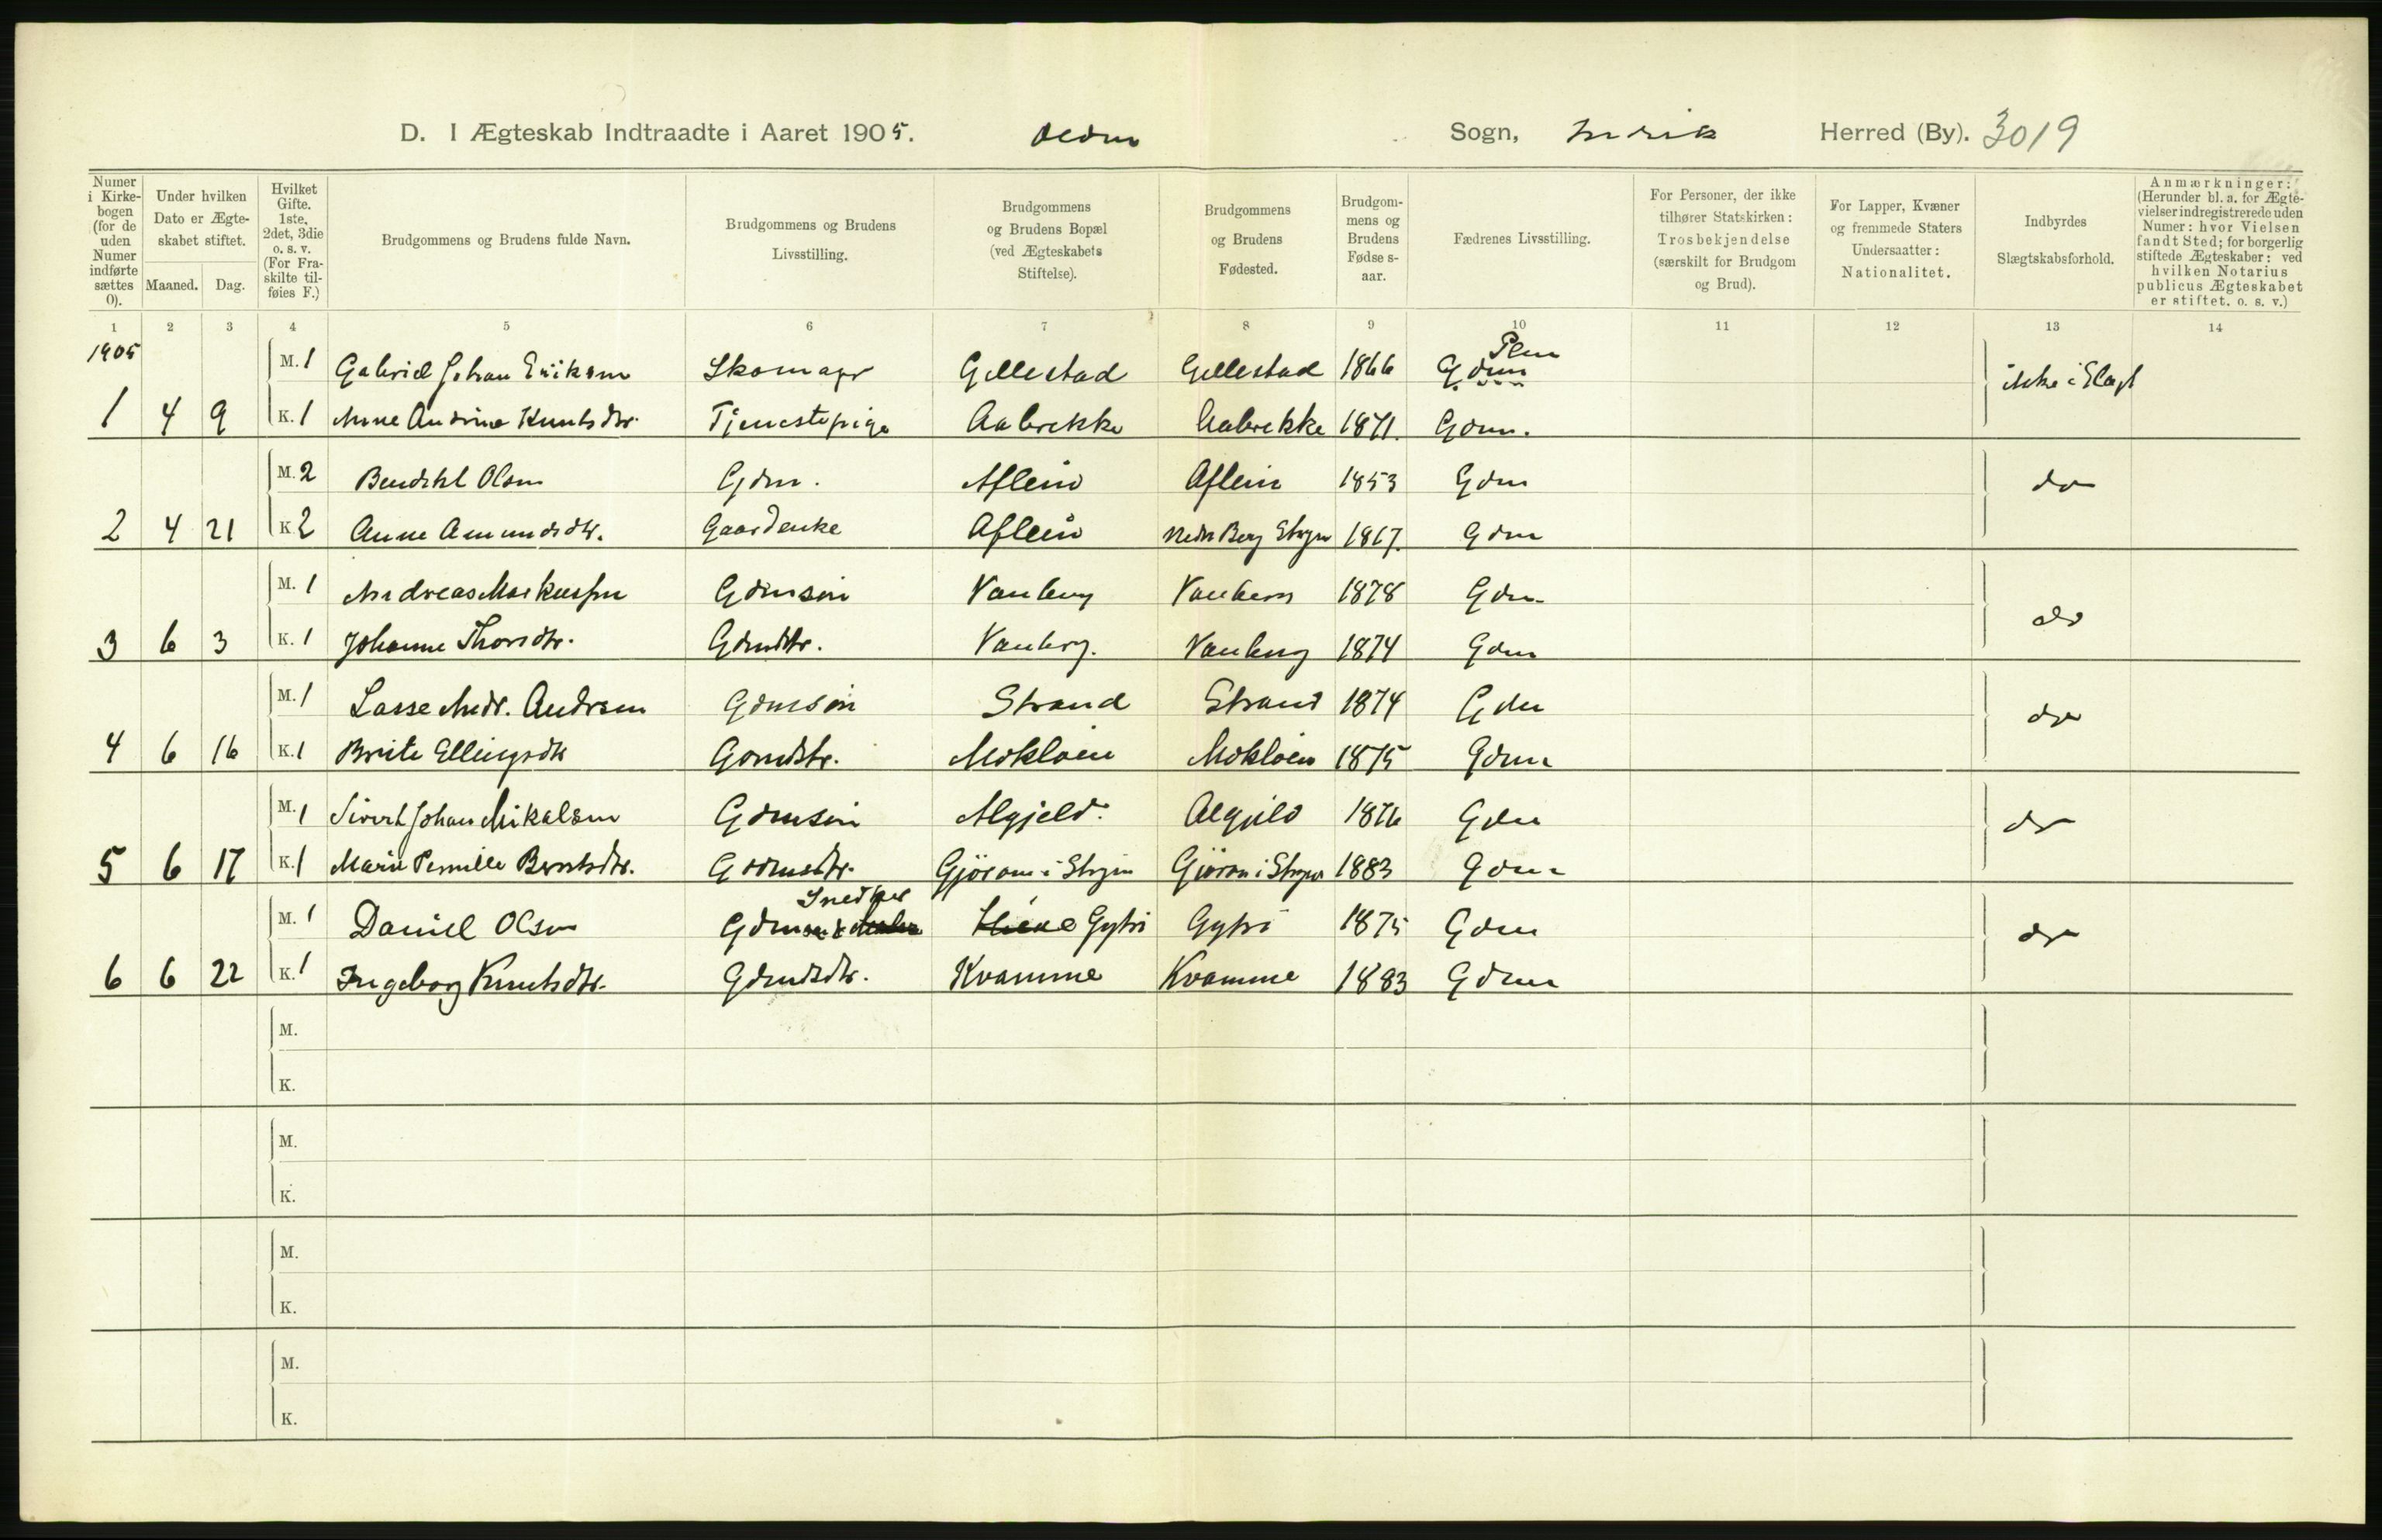 D. I Ægteskab Indtraadte i Aaret 1905. Olden Sogn, Indvik Herred (By). 3019
Numer i Kirkebogen (for de uden Numer indførte sættes 0).
Under hvilken Dato er Ægteskabet stiftet.
Maaned. Dag.
Hvilket Gifte. 1ste, 2det, 3die o. s. v. (For Fraskilte tilføies F.)
Brudgommens og Brudens fulde Navn.
Brudgommens og Brudens Livsstilling.
Brudgommens og Brudens Bopæl (ved Ægteskabets Stiftelse).
Brudgommens og Brudens Fødested.
Brudgommens og Brudens Fødselsaar.
Fædrenes Livsstilling.
For Personer, der ikke tilhører Statskirken: Trosbekjendelse (særskilt for Brudgom og Brud).
For Lapper, Kvæner og fremmede Staters Undersaatter: Nationalitet.
Indbyrdes Slægtskabsforhold.
Anmærkninger: (Herunder bl. a. for Ægtevielser indregistrerede uden Numer: hvor Vielsen fandt Sted; for borgerlig stiftede Ægteskaber: ved hvilken Notarius publicus Ægteskabet er stiftet. o. s. v.)
1 2 3 4 5 6 7 8 9 10 11 12 13 14
1905
M. 1 Gabriel Johan Eriksen Skomager Gellestad Gellestad 1866 Gdmn Plm ikke i Slægt
1 4 9 K. 1 Anne Andrine Knutsdtr. Tjenestepige Aabrekke Aabrekke 1871. Gdmn.
M. 2 Bendikt Olsen Gdm. Aflein Aflein 1853 Gdm do
2 4 21 K. 2 Anne Amundsdtr. Gaardenke Aflein Nedre Berg Stryn 1867. Gdm
M. 1 Andreas Markussen Gdmsøn Vanberg Vanberg 1878 Gdm do
3 6 3 K. 1 Johanne Thorsdtr. Gdmdtr. Vanberg. Vanberg 1874 Gdm
M. 1 Lasse Andr. Andrsen Gdmsøn Strand Strand 1874 Gdm do
4 6 16 K. 1 Brite Ellingsdtr Gdmdtr. Mokløen Mokløen 1875 Gdm
M. 1 Sivert Johan Mikalsen Gdmsøn Algjeld. Algjeld 1876 Gdm do
5 6 17 K. 1 Marie Pernille Berntsdtr. Gdmsdtr. Gjøran i Stryn Gjøran i Stryn 1883 Gdm
Snedker
M. 1 Daniel Olsen Gdmsøn & Gytri Gytri 1875 Gdm do
6 6 22 K. 1 Ingeborg Knutsdtr. Gdmdtr. Kvamme Kvamme 1883 Gdm
M.
K.
M.
K.
M.
K.
M.
K.